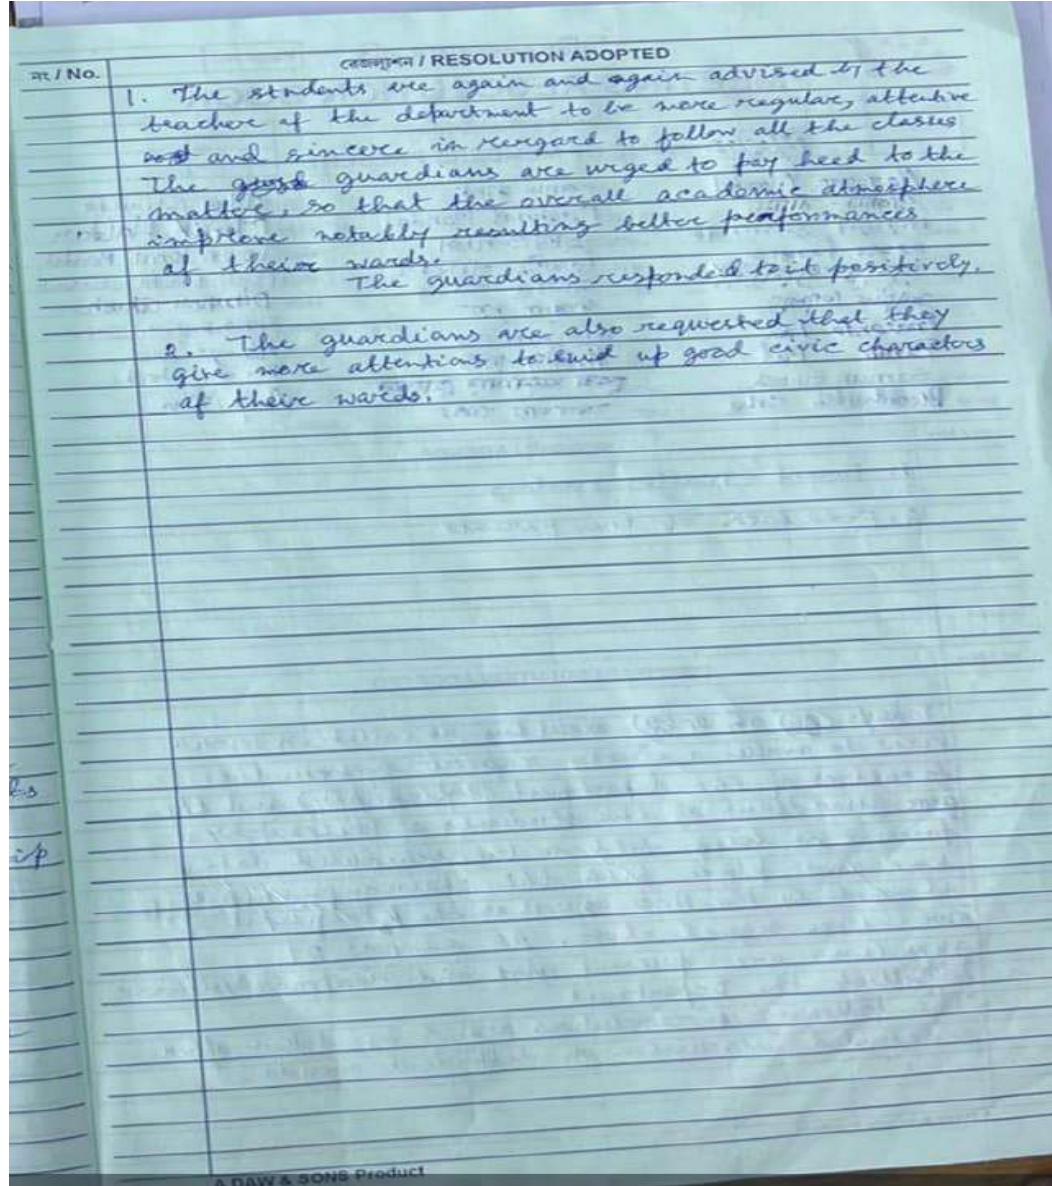 নং / No.
রেজল্যুশন / RESOLUTION ADOPTED
1. The students are again and again advised by the
teacher of the department to be more regular, attentive
and sincere in rergard to follow all the classes
The guardians are urged to pay heed to the
matter, so that the overall academic atmosphere
improve notably resulting better performances
of their wards.
The guardians responded to it positively.
2. The guardians are also requested that they
give more attentions to buid up good civic charactors
of their wards.
ip
A DAW & SONS Product